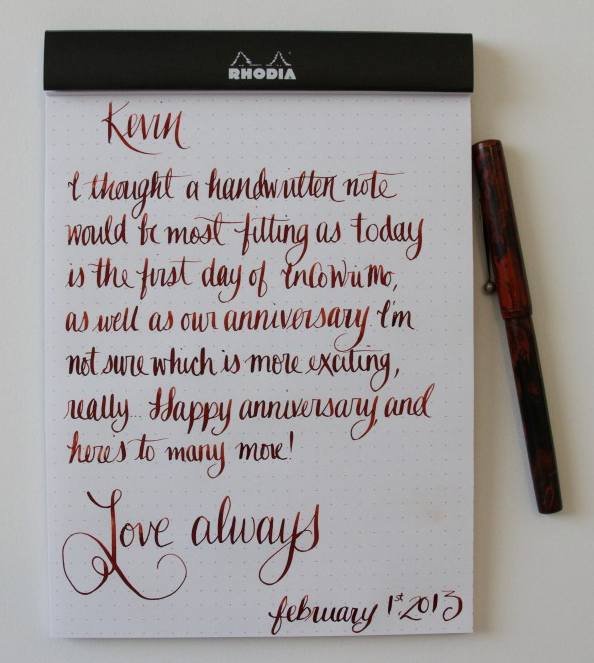 RHODIA
Kevin
I thought a handwritten note
would be most fitting as today
is the first day of InCoWriMo,
as well as our anniversary. I'm
not sure which is more exciting,
really... Happy anniversary, and
here's to many more!
Love always
february 1st, 2013